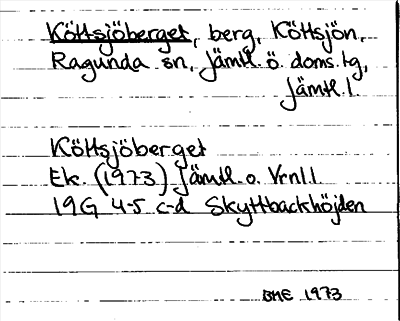 Köttsjöberget, berg, Köttsjön,
Ragunda sn, Jämtl. ö. doms.tg,
Jämtl. l.
Köttsjöberget
Ek. (1973) Jämtl. o. Vrnl l
19G 4-5 c-d Skyttbackhöjden
BME 1973